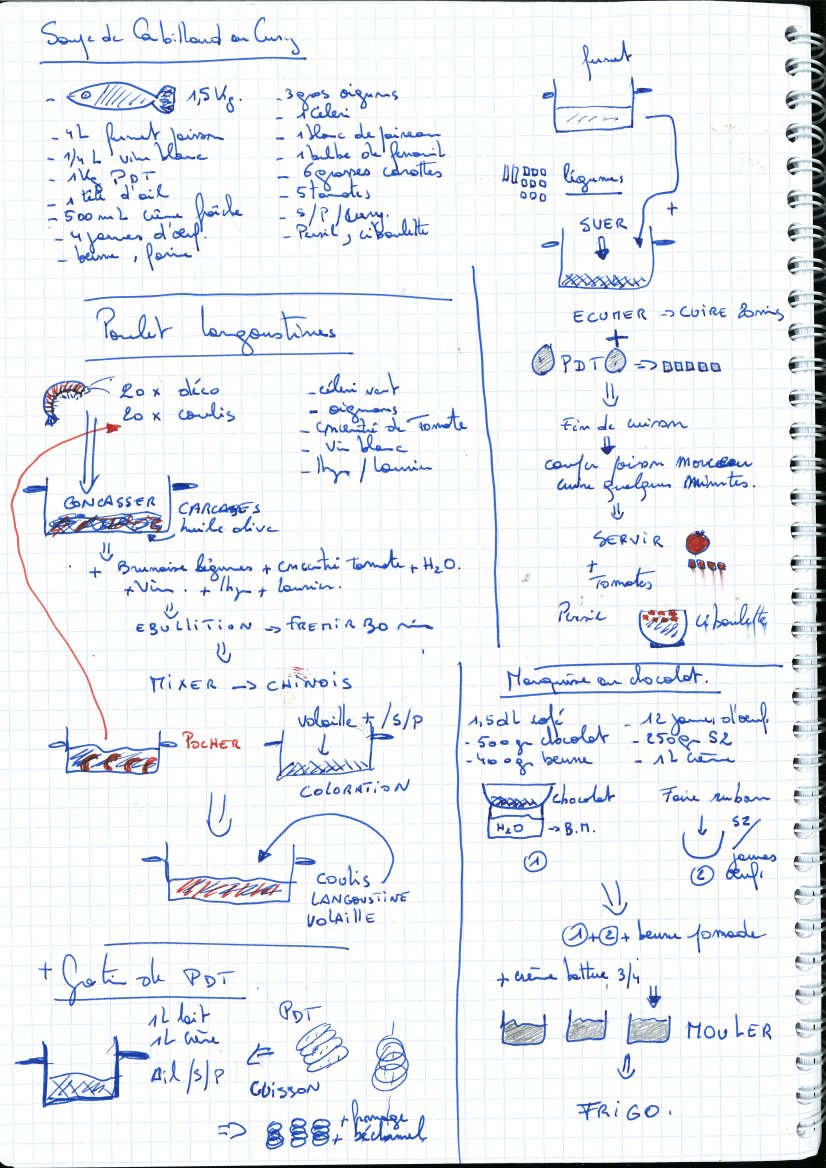 Soupe de Cabillaud au Curry
- 1,5 Kg.
- 4L fumet poisson
- 1/4 L vin blanc
- 1Kg PDT
- 1 tête d'ail
- 500 mL crème fraîche
- 4 jaunes d'œuf.
- beurre, farine
- 3 gros oignons
- 1 Céleri
- 1 blanc de poireau
- 1 bulbe de fenouil
- 6 grosses carottes
- 5 tomates
- S/P/Curry.
- Persil, ciboulette
fumet
légumes
+
SUER
ECUMER → CUIRE 20 mins
+
PDT ⇒
Fin de cuisson
couper poisson morceau
cuire quelques minutes.
SERVIR
+
Tomates
Persil
ciboulette
Poulet langoustines
20 x déco
20 x coulis
- céleri vert
- oignons
- concentré de Tomate
- Vin blanc
- Thym / Laurier
CONCASSER
CARCASSES
huile olive
+ Brunoise légumes + concentré Tomate + H2O.
+ Vin. + Thym + Laurier.
EBULLITION → FREMIR 30 min
MIXER → CHINOIS
POCHER
Volaille + /S/P
COLORATION
COULIS
LANGOUSTINE
VOLAILLE
+ Gratin de PDT
1L lait
1L crème
Ail /S/P
PDT
CUISSON
+ fromage
+ béchamel
Marquise au chocolat.
1,5dL café
- 500gr chocolat
- 400gr beurre
- 12 jaunes d'œuf.
- 250gr S2
- 1L crème
chocolat
H2O → B.M.
1
Faire ruban
S2
jaunes
œufs
2
1 + 2 + beurre pomade
+ crème battue 3/4
MOULER
FRIGO.